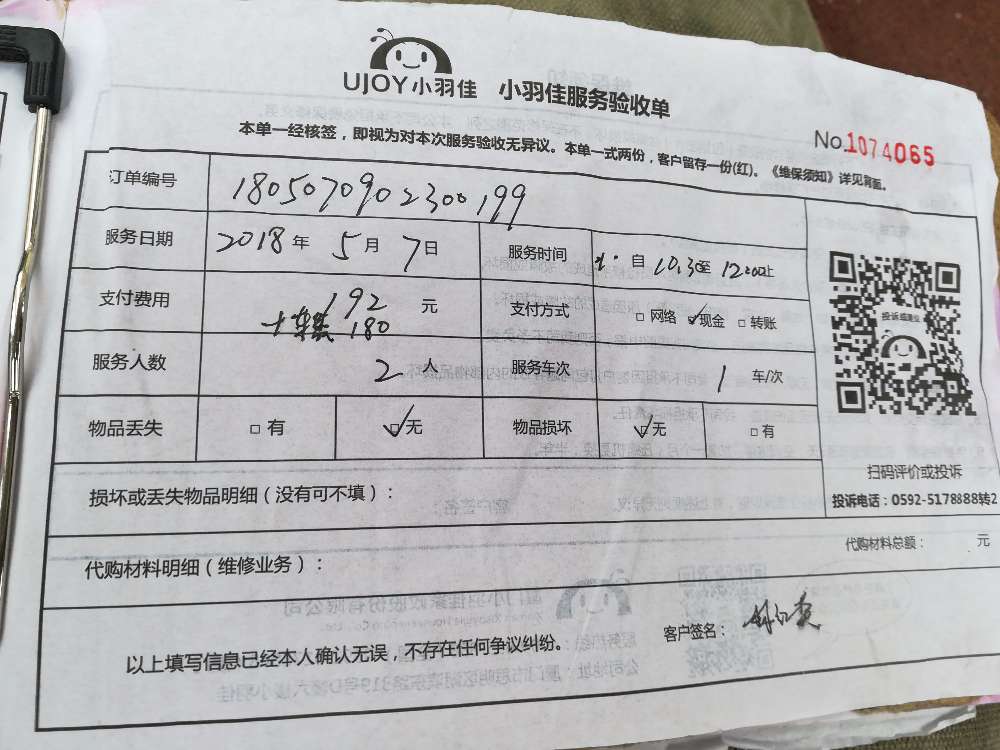 UJOY小羽佳 小羽佳服务验收单
本单一经核签，即视为对本次服务验收无异议。本单一式两份，客户留存一份(红)。《维保须知》详见背面。
No.1074065
订单编号 1805070902300199
服务日期 2018年 5月 7日 服务时间 自 10.3至 12:00止
支付费用 192 元 支付方式 □ 网络 ☑现金 □ 转账
180
服务人数 2 人 服务车次 1 车/次
物品丢失 □ 有 ☑无 物品损坏 ☑无 □ 有
投诉或建议
扫码评价或投诉
投诉电话：0592-5178888转2
损坏或丢失物品明细（没有可不填）：
代购材料总额： 元
代购材料明细（维修业务）：
以上填写信息已经本人确认无误，不存在任何争议纠纷。 客户签名：